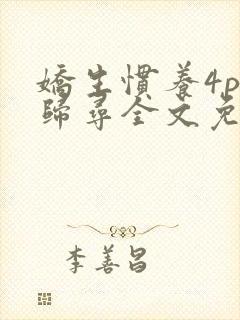 嬌生慣養4p
歸尋全文免
李善昌